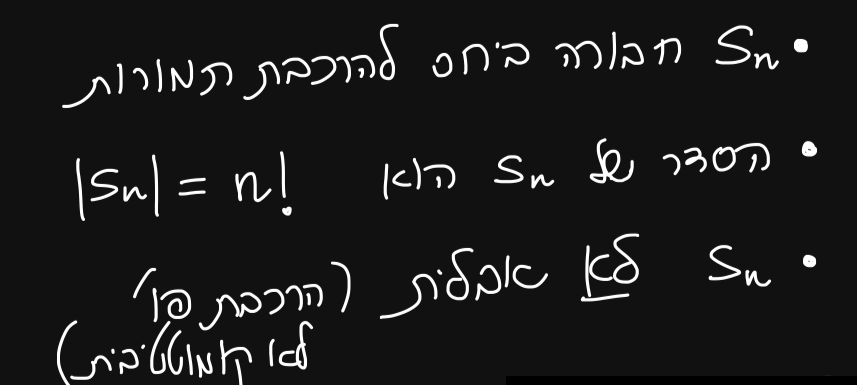 • Sₙ חבורה ביחס להרכבת תמורות
• הסדר של Sₙ הוא |Sₙ| = n!
• Sₙ לא אבלית (הרכבת פו'
לא קומוטטיבית)